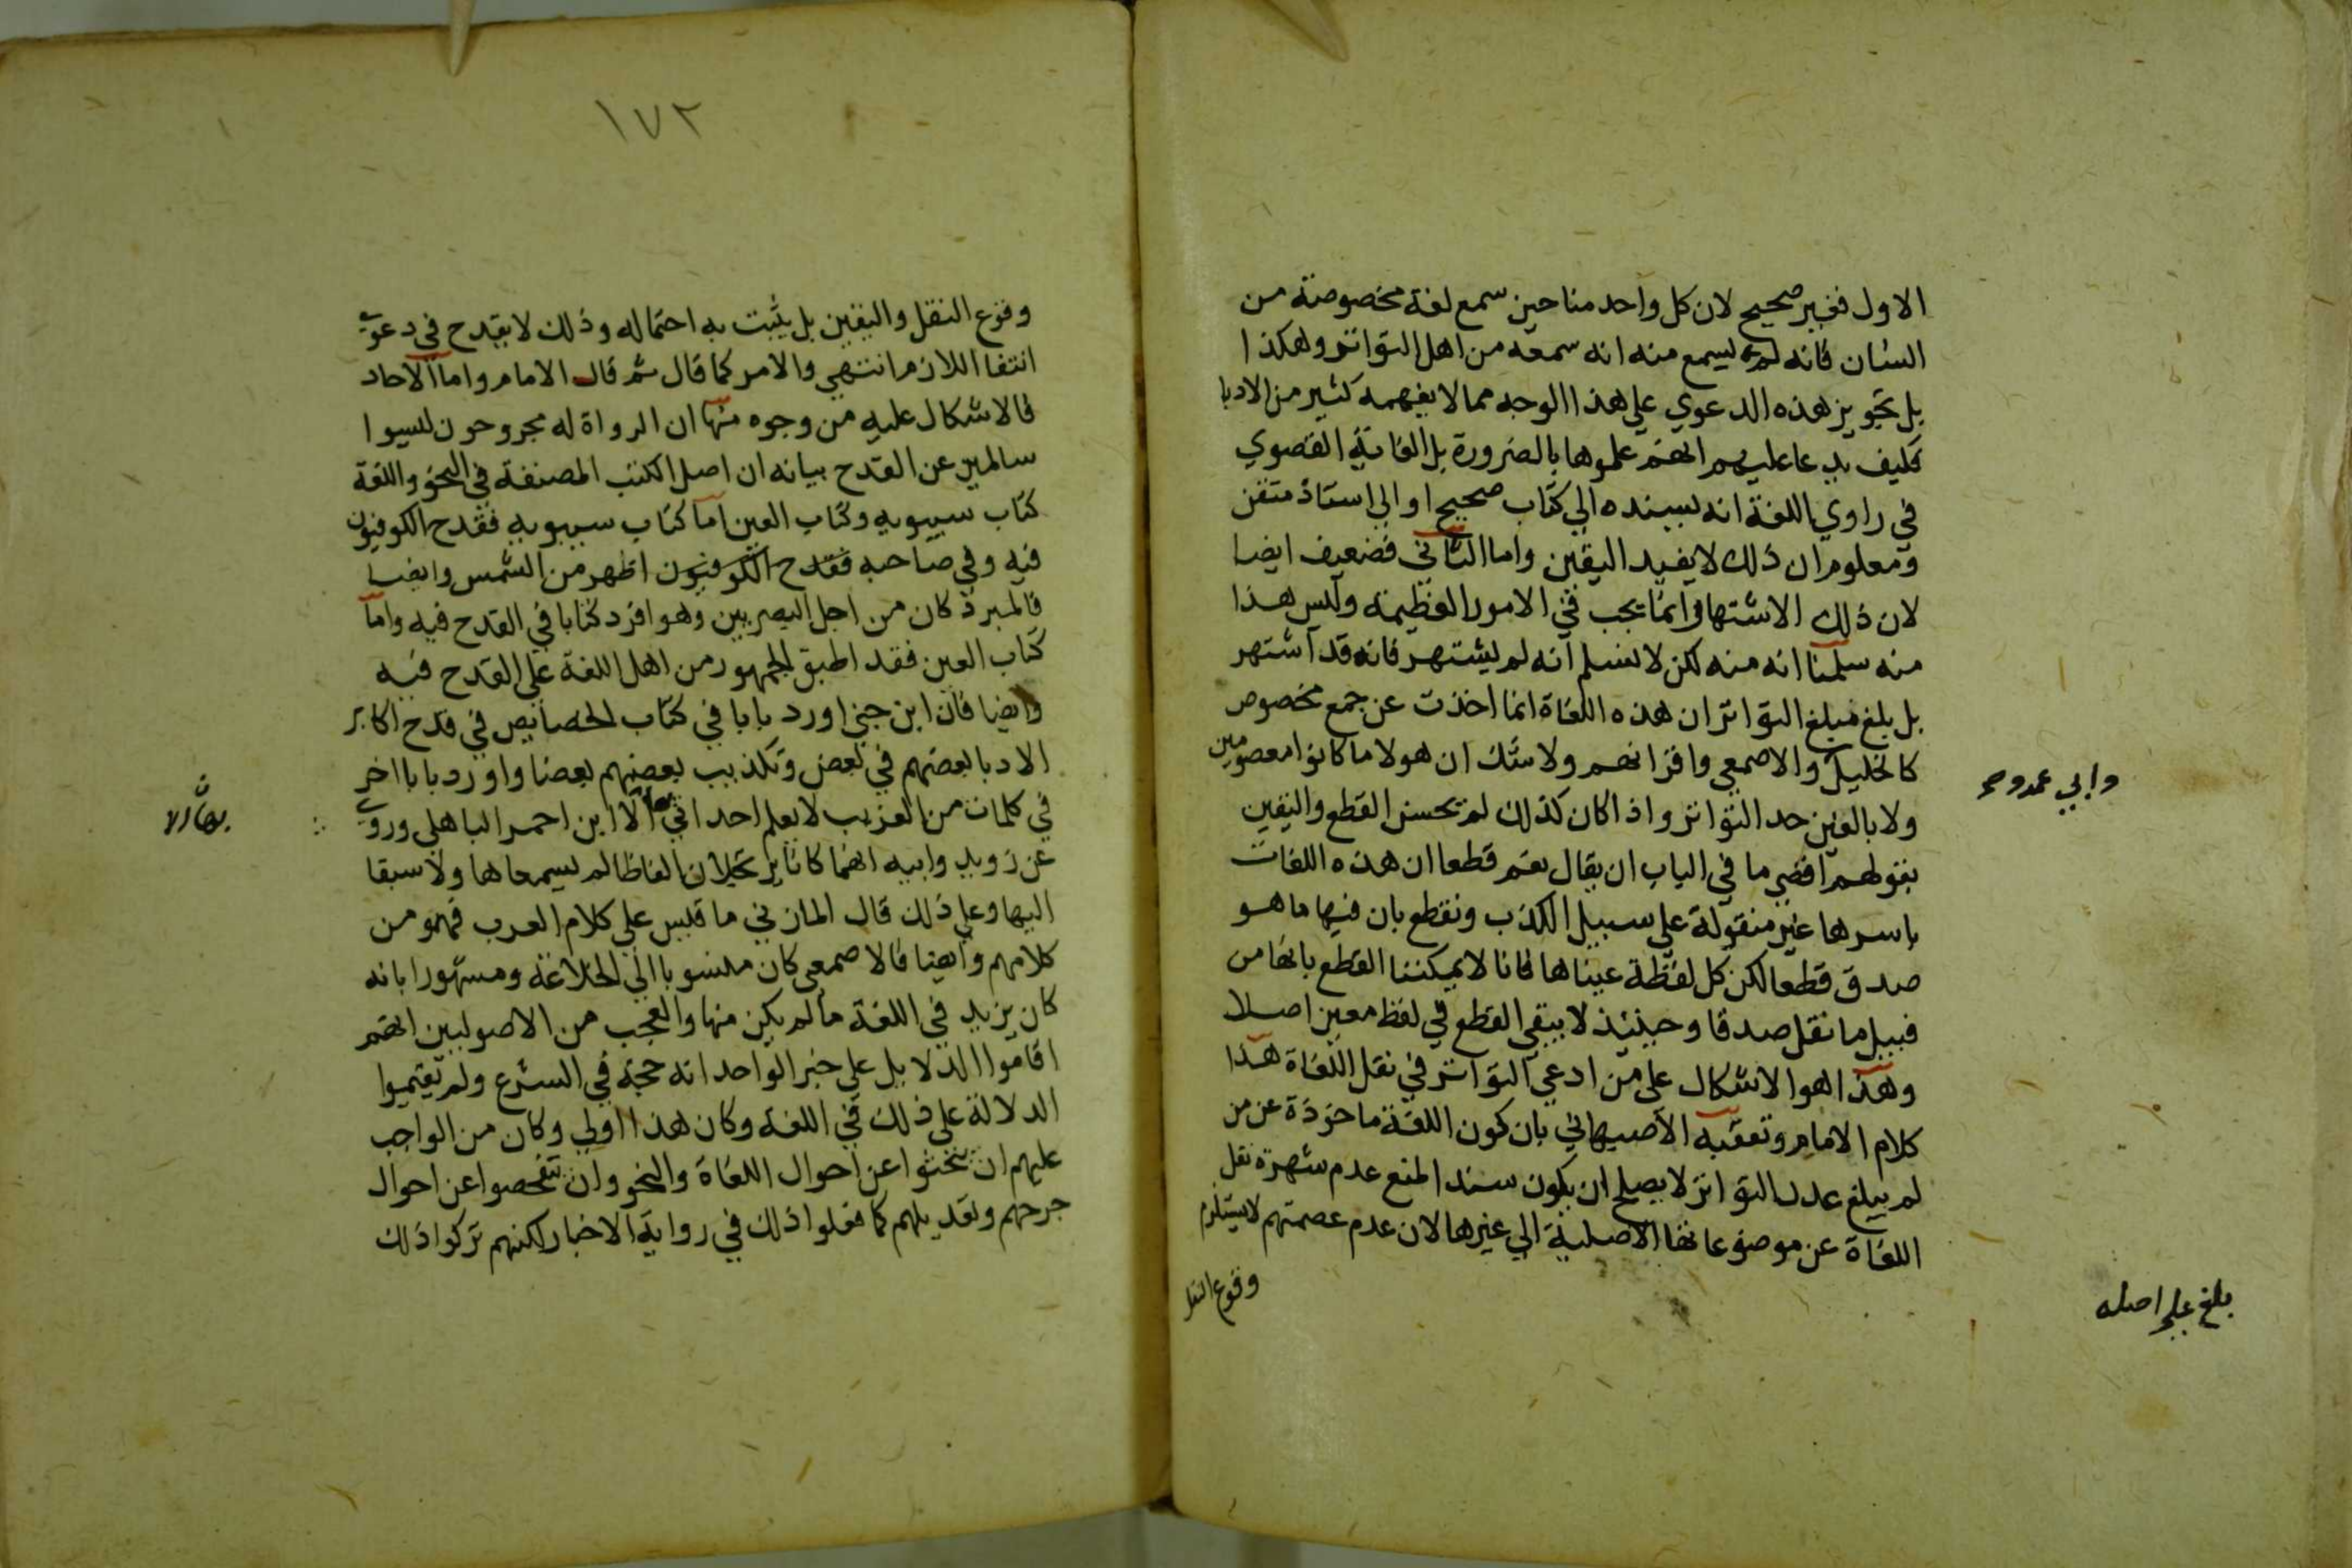 الاول فغير صحيح لان كل واحد منا حين سمع لغة مخصوصة من
انسان فانه لم يسمع منه انه سمعه من اهل التواتر وهكذا
بل تجويز هذه الدعوي علي هذا الوجه مما لا يفهمه كثير من الادبا
فكيف يدعا عليهم انهم علموها بالضرورة بل الغاية القصوي
في راوي اللغة انه يسنده الي كتاب صحيح او الي استاذ متقن
ومعلوم ان ذلك لا يفيد اليقين واما الثاني فضعيف ايضا
لان ذلك الاشتهار انما يجب في الامور العظيمة وليس هذا
منه سلمنا انه منه لكن لا نسلم انه لم يشتهر فانه قد اشتهر
بل بلغ مبلغ التواتر ان هذه اللغاة انما اخذت عن جمع مخصوص
كالخليل والاصمعي واقرانهم ولا شك ان هولا ما كانوا معصومين
وابي عمرو صح
ولا بالغين حد التواتر واذا كان كذلك لم يحسن القطع واليقين
بقولهم اقصي ما في الباب ان يقال نعم قطعا ان هذه اللغات
باسرها غير منقولة علي سبيل الكذب ونقطع بان فيها ما هو
صدق قطعا لكن كل لفظة عيناها فانا لا يمكننا القطع بانها من
قبيل ما نقل صدقا وحينئذ لا يبقي القطع في لفظ معين اصلا
وهذا هو الاشكال علي من ادعي التواتر في نقل اللغاة هذا
كلام الامام وتعقبه الاصبهاني بان كون اللغة ماخوذة عن من
لم يبلغ عدد التواتر لا يصلح ان يكون سند المنع عدم شهرة نقل
اللغاة عن موضوعاتها الاصلية الي غيرها لان عدم عصمتهم لا يستلزم
وقوع النقل
بلغ علي اصله
١٧٢
وقوع النقل واليقين بل يثبت به احتماله وذلك لا يقدح في دعوي
انتفا اللازم انتهي والامر كما قال ثم قال الامام واما الاحاد
فالاشكال عليه من وجوه منها ان الرواة له مجروحون ليسوا
سالمين عن القدح بيانه ان اصل الكتب المصنفة في النحو واللغة
كتاب سيبويه وكتاب العين اما كتاب سيبويه فقدح الكوفيون
فيه وفي صاحبه فقدح الكوفيون اظهر من الشمس وايضا
فالمبرد كان من اجل البصريين وهو افرد كتابا في القدح فيه واما
كتاب العين فقد اطبق الجمهور من اهل اللغة علي القدح فيه
وايضا فان ابن جني اورد بابا في كتاب الخصايص في قدح اكابر
الادبا بعضهم في بعض وتكذيب بعضهم بعضا واورد بابا اخر
في كلمات من الغريب لا يعلم احد اتي بها الا ابن احمر الباهلي وروي
بها الا
عن رويد وابيه انهما كانا يرتجلان الفاظا لم يسمعاها ولا سبقا
اليها وعلي ذلك قال المازني ما قيس علي كلام العرب فهو من
كلامهم وايضا فالاصمعي كان منسوبا الي الخلاعة ومشهورا بانه
كان يزيد في اللغة ما لم يكن منها والعجب من الاصوليين انهم
اقاموا الدلايل علي خبر الواحد انه حجة في الشرع ولم يقيموا
الدلالة علي ذلك في اللغة وكان هذا اولي وكان من الواجب
عليهم ان يبحثوا عن احوال اللغاة والنحو وان يتفحصوا عن احوال
جرحهم وتعديلهم كما فعلوا ذلك في رواية الاخبار لكنهم تركوا ذلك